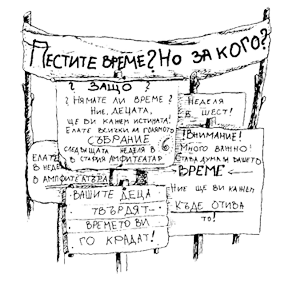 Пестите време? Но за кого?
? Защо ?
? Нямате ли време ?
Ние, децата,
ще ви кажем истината!
Елате всички на голямото
събрание
следващата неделя в 6
в стария амфитеатър
Неделя
в шест!
! Внимание!
Много важно!
Става дума за вашето
време
Ние ще ви кажем
къде отива
то!
Елате
в неде
в амфитеатъра
Вашите деца
твърдят...
времето ви
го крадат!